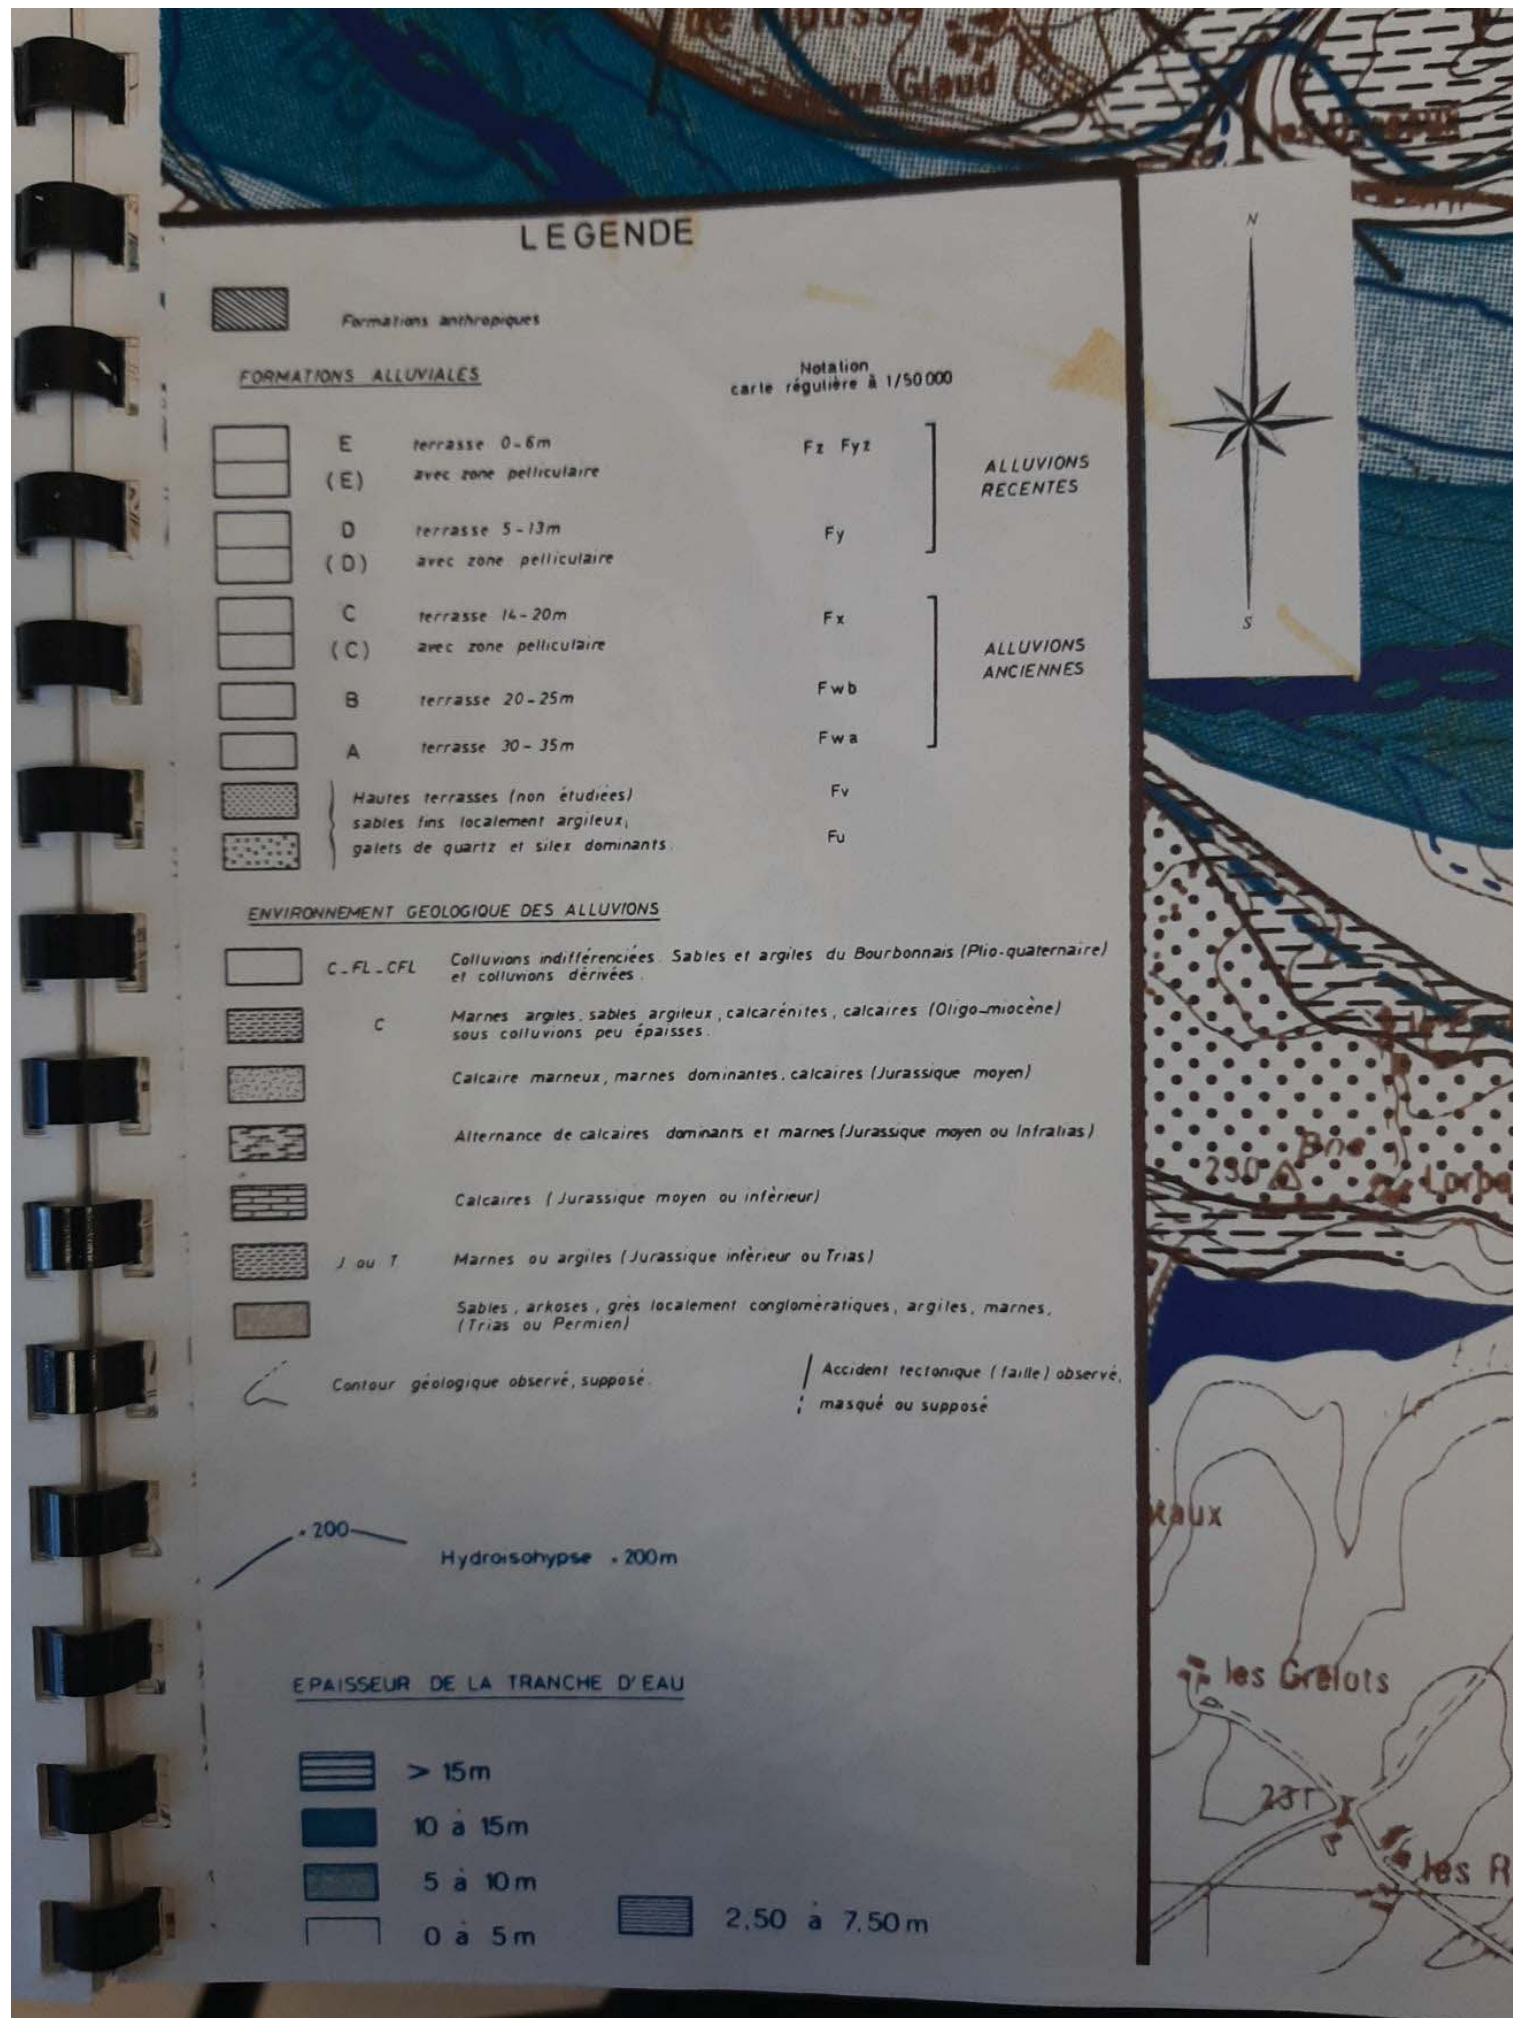 Glaud
LEGENDE
N
S
Formations anthropiques
FORMATIONS ALLUVIALES
Notation
carte régulière à 1/50 000
E terrasse 0-6m Fz Fyz
(E) avec zone pelliculaire
ALLUVIONS
RECENTES
D terrasse 5-13m Fy
(D) avec zone pelliculaire
C terrasse 14-20m Fx
(C) avec zone pelliculaire
ALLUVIONS
ANCIENNES
B terrasse 20-25m Fwb
A terrasse 30-35m Fwa
Hautes terrasses (non étudiées) Fv
sables fins localement argileux,
galets de quartz et silex dominants. Fu
ENVIRONNEMENT GEOLOGIQUE DES ALLUVIONS
C_FL_CFL Colluvions indifférenciées. Sables et argiles du Bourbonnais (Plio-quaternaire)
et colluvions dérivées.
C Marnes argiles, sables argileux, calcarénites, calcaires (Oligo-miocène)
sous colluvions peu épaisses.
Calcaire marneux, marnes dominantes, calcaires (Jurassique moyen)
Alternance de calcaires dominants et marnes (Jurassique moyen ou Infralias)
Calcaires (Jurassique moyen ou inférieur)
J ou T Marnes ou argiles (Jurassique inférieur ou Trias)
Sables, arkoses, grès localement conglomératiques, argiles, marnes,
(Trias ou Permien)
Contour géologique observé, supposé.
Accident tectonique (faille) observé,
masqué ou supposé
.200
Hydroisohypse .200m
EPAISSEUR DE LA TRANCHE D'EAU
> 15m
10 à 15m
5 à 10m
0 à 5m
2,50 à 7,50m
230
les Grelots
231
les R